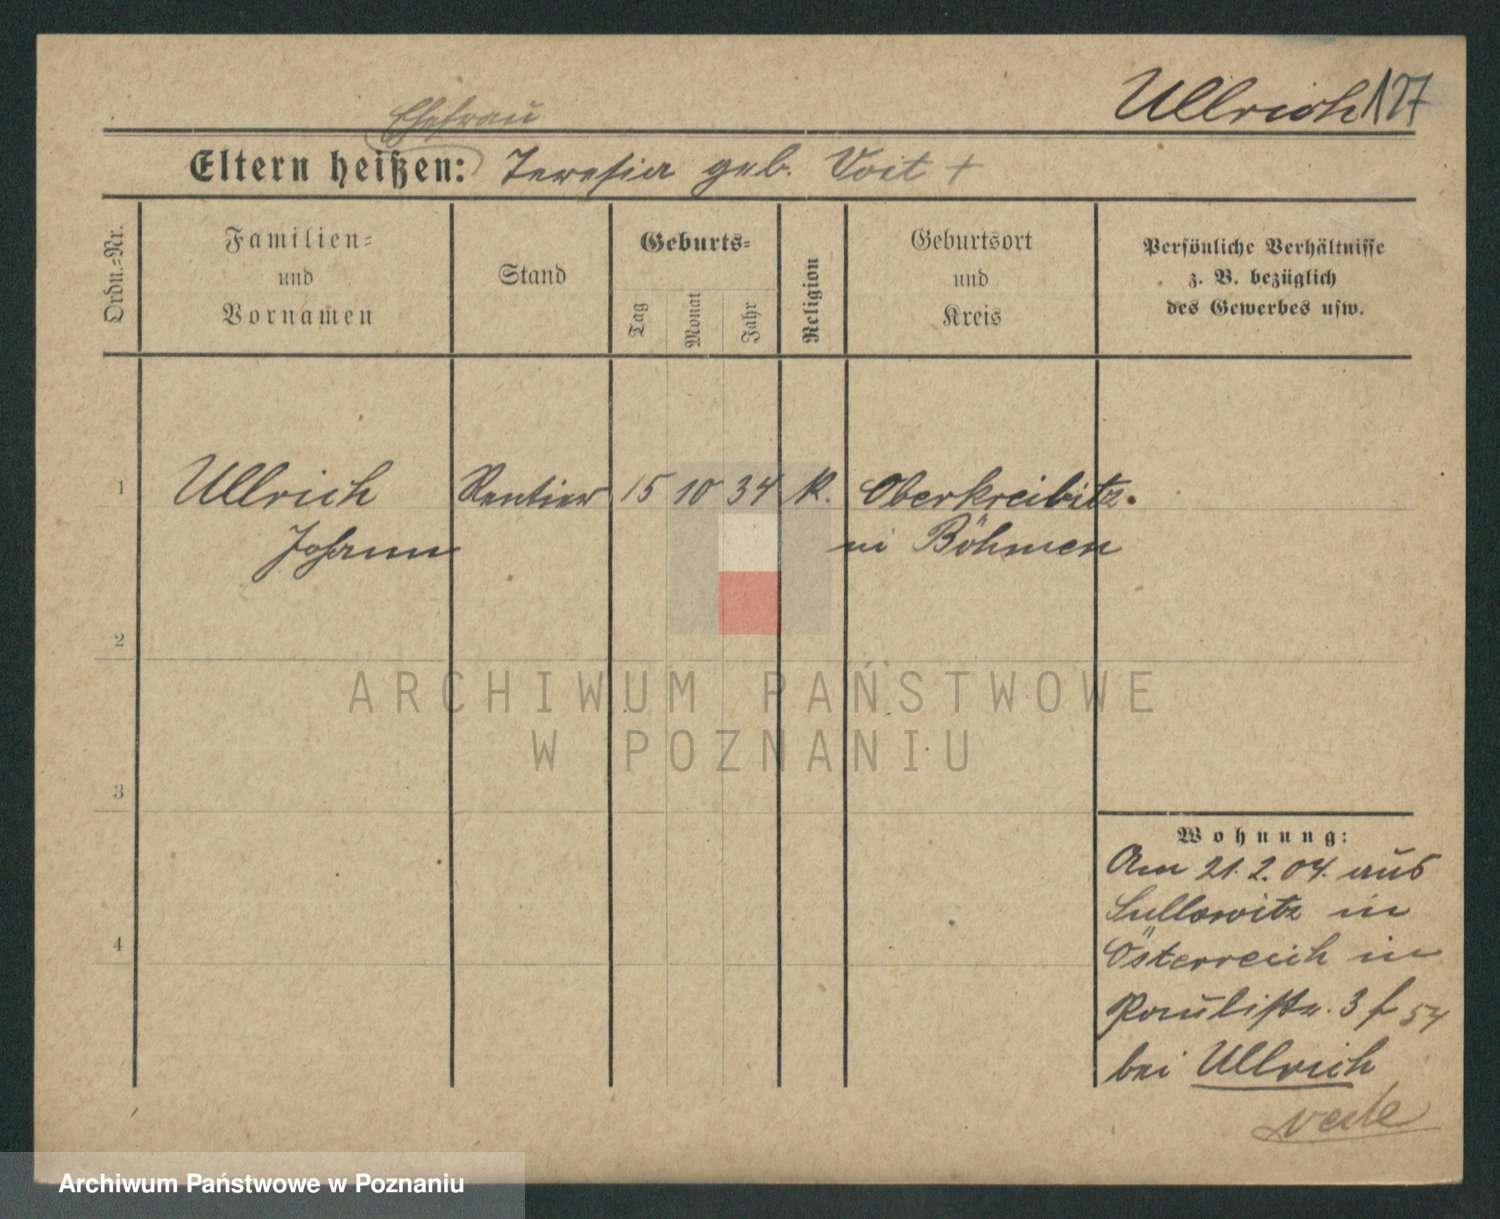 Ullrich 127
Ehefrau
Eltern heißen: Teresia geb. Voit +
Ordn.-Nr.
Familien-
und
Vornamen
Stand
Geburts-
Tag
Monat
Jahr
Religion
Geburtsort
und
Kreis
Persönliche Verhältnisse
z. B. bezüglich
des Gewerbes usw.
1 Ullrich Rentier 15 10 34 K. Oberkreibitz
Johann in Böhmen
2
ARCHIWUM PAŃSTWOWE
W POZNANIU
3
Wohnung:
Am 21.2.04. aus
Sullowitz in
4
Österreich in
Paulistr. 3 f 54
bei Ullrich
Archiwum Państwowe w Poznaniu